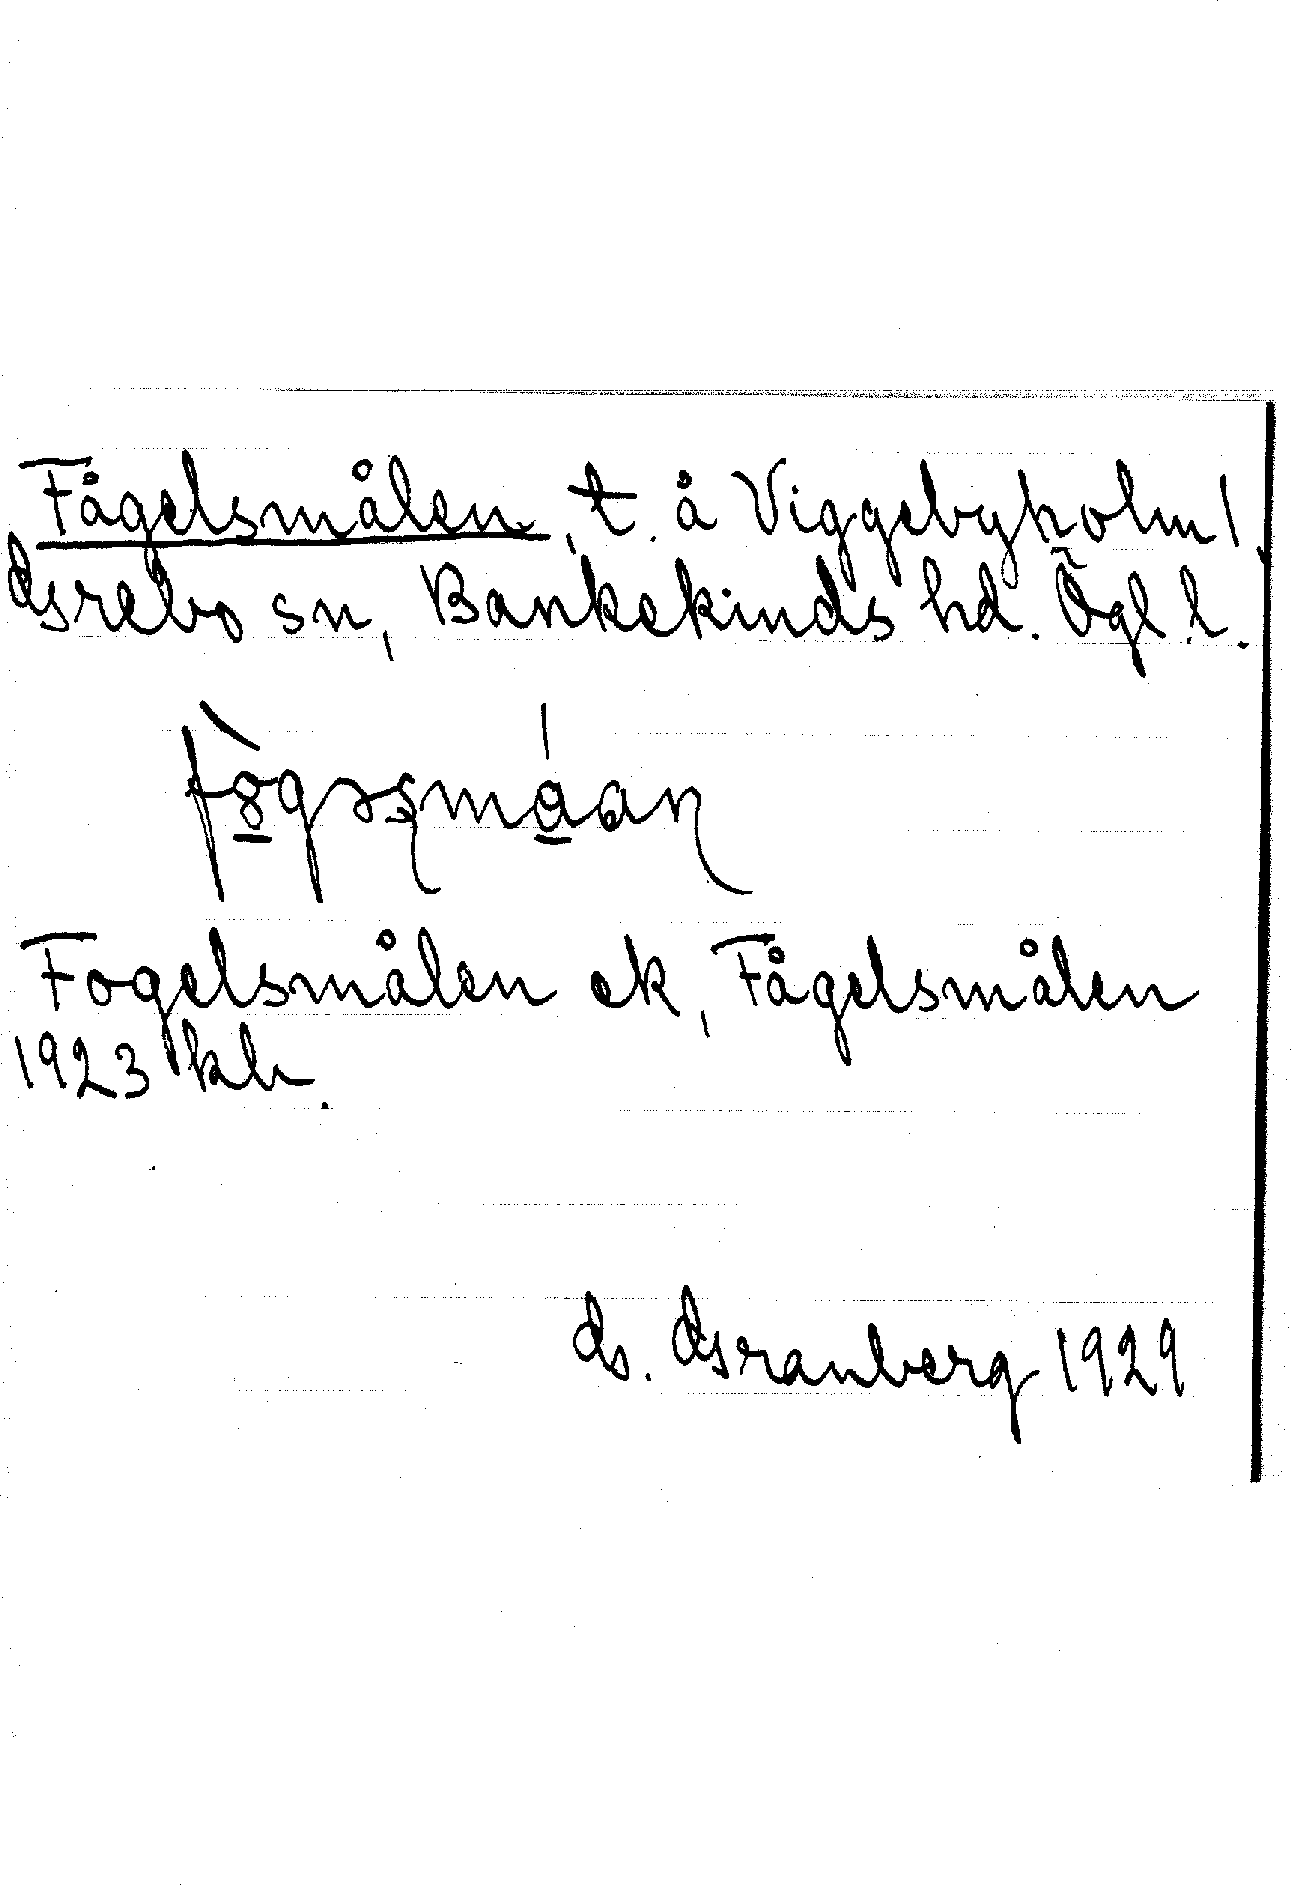 Fågelsmålen, t. å Viggebyholm 1,
Grebo sn, Bankekinds hd. Ögl. l.
Fogelsmålen ek, Fågelsmålen
1923 kb.
G. Granberg 1929